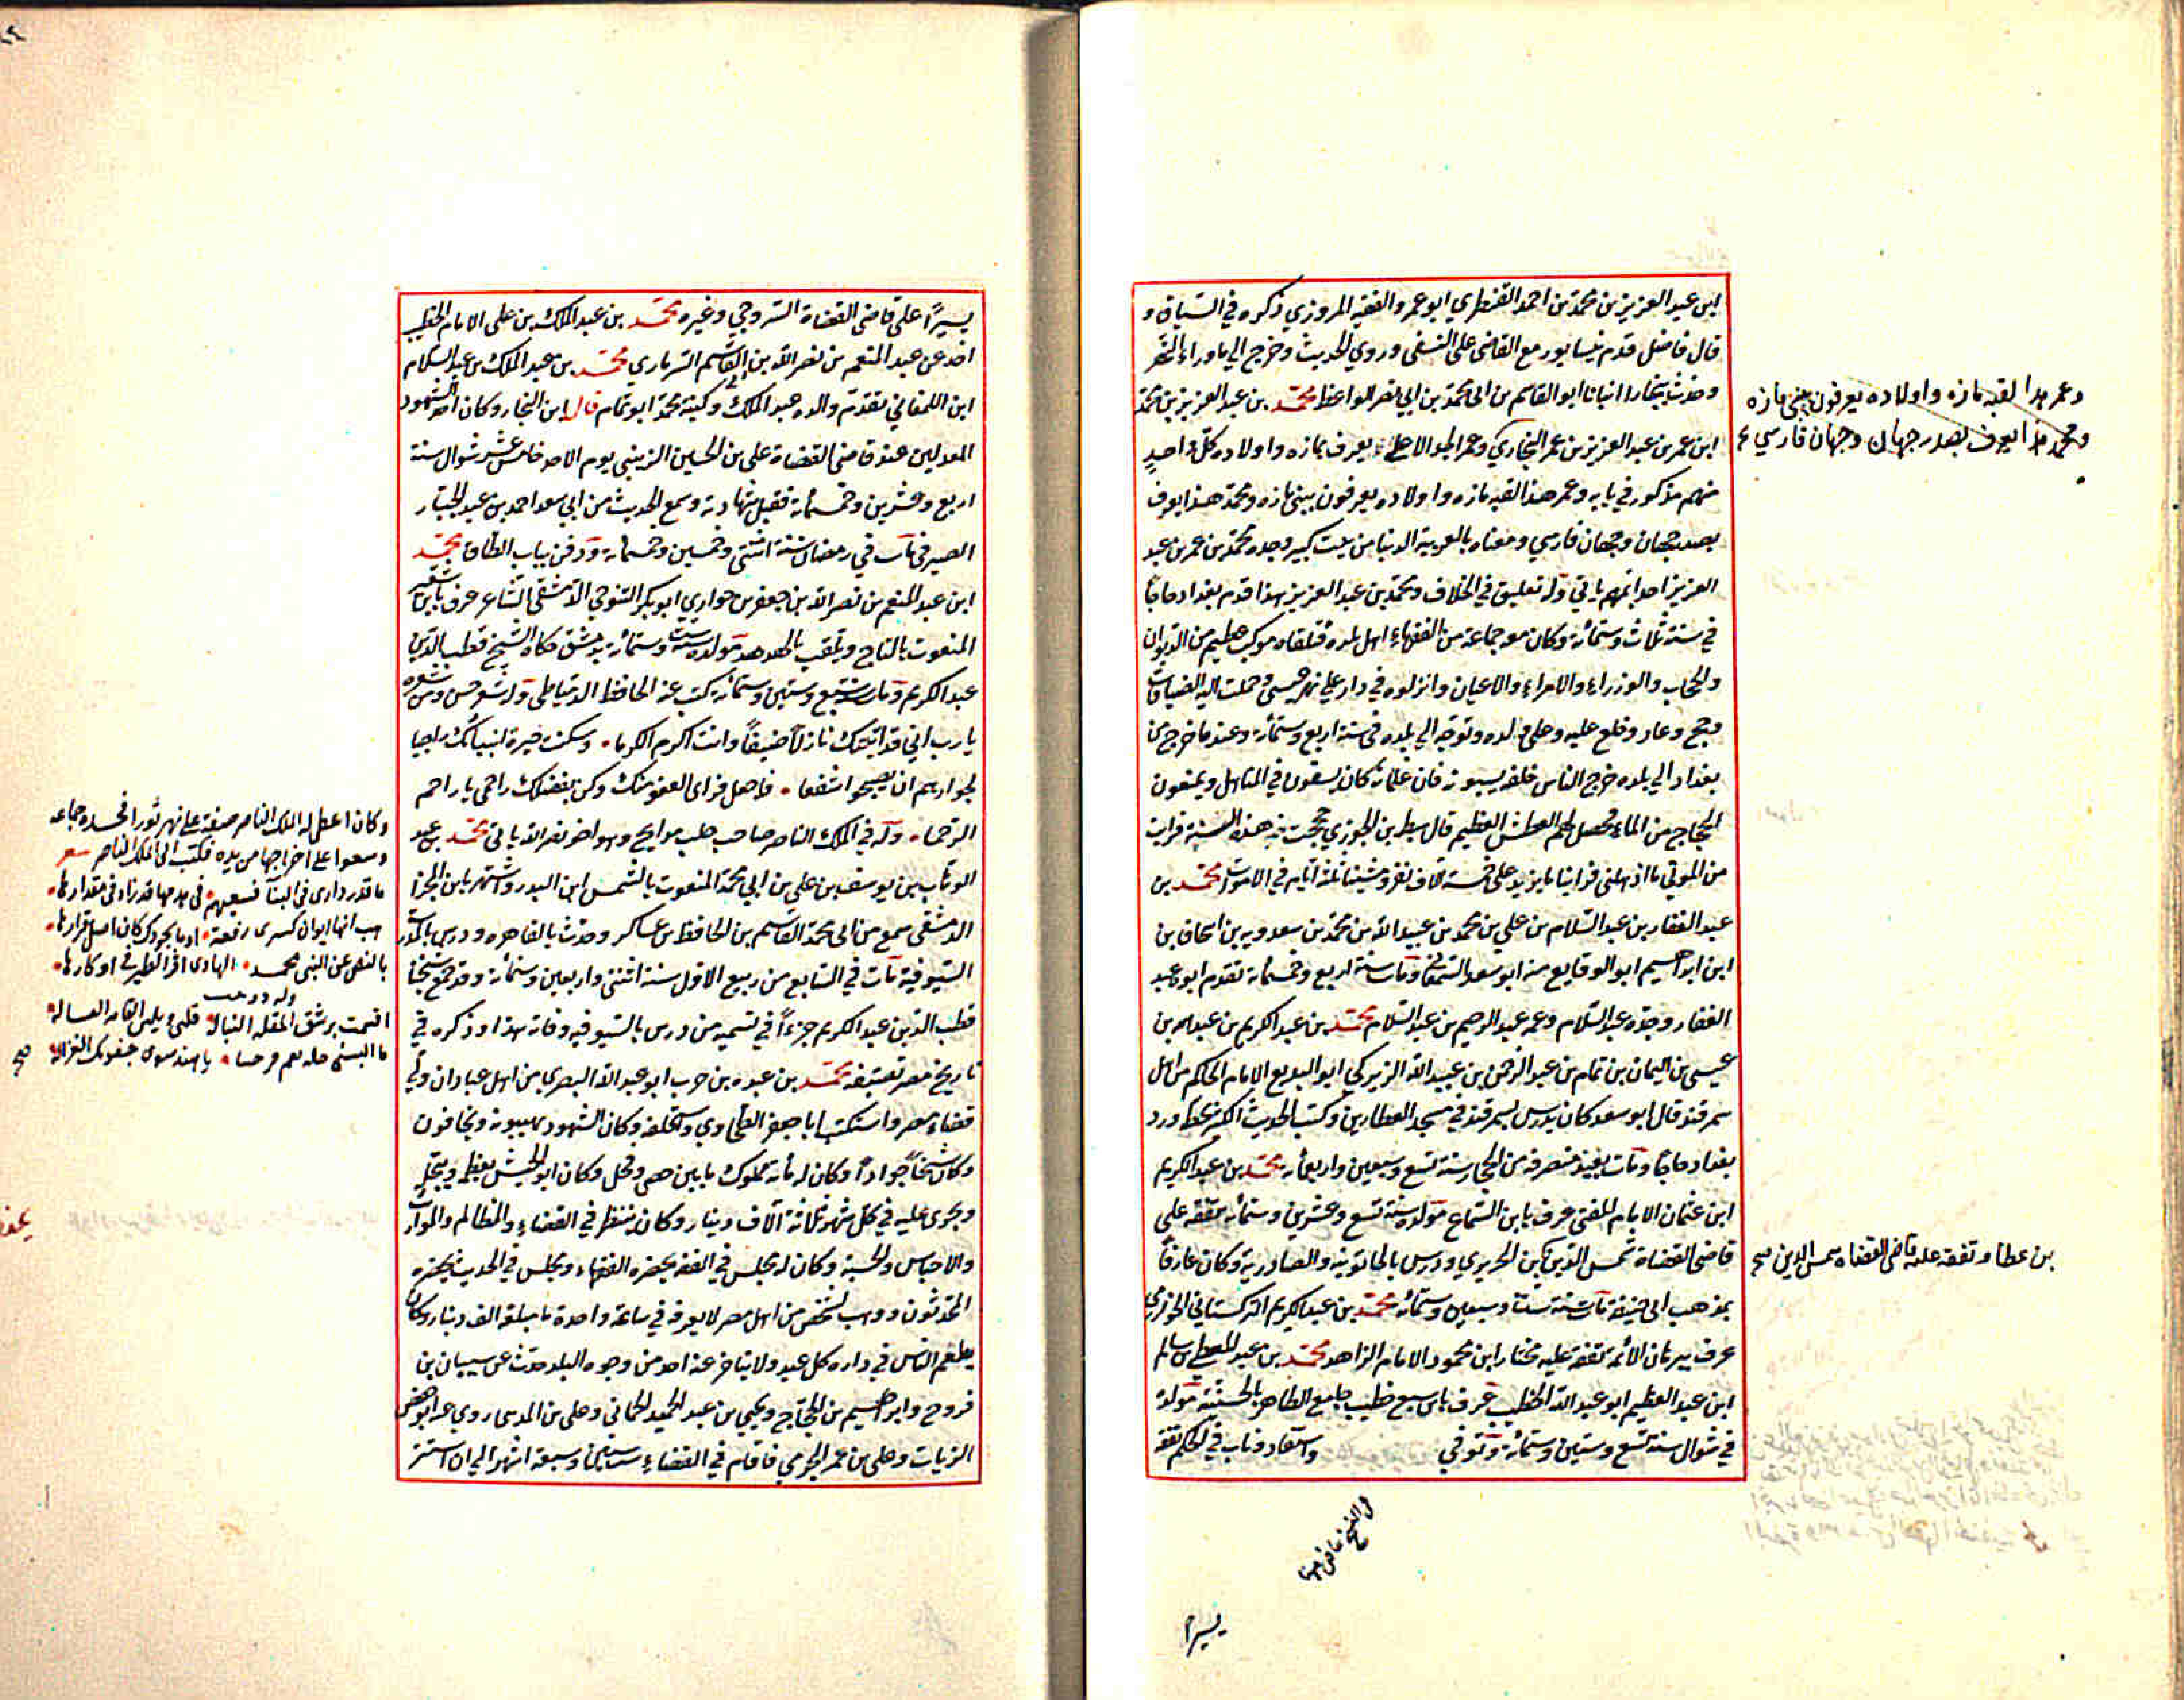 ابن عبد العزيز بن محمد بن احمد القنطري ابو عمرو الفقيه المروزي ذكره في السياق و
قال فاضل قدم نيسابور مع القاضي علي النسفي وروي الحديث وخرج الي ماوراء النهر
وحدث ببخارا انبانا ابو القاسم بن ابي محمد بن ابي نصر الواعظ محمد بن عبد العزيز بن محمد
ابن عمر بن عبد العزيز بن عمر البخاري وعمر الجد الاعلي يعرف بمازه واولاده كل واحد
منهم مذكور في بابه وعمر هذا لقبه مازه واولاده يعرفون ببني مازه ومحمد هذا يعرف
بصدر جهان وجهان فارسي ومعناه بالعربية الدنيا من بيت كبير وجده محمد بن عمر بن عبد
العزيز احد ائمتهم ياتي وله تعليق في الخلاف ومحمد بن عبد العزيز هذا قدم بغداد حاجا
في سنة ثلاث وستمأئة وكان معه جماعة من الفقهاء اهل بلده فتلقاه موكب عظيم من الديوان
والحجاب والوزراء والامراء والاعيان وانزلوه في دار علي نهر عيسي وحملت اليه الضيافات
وحج وعاد وخلع عليه وعلي ولده وتوجه الي بلده في سنة اربع وستمأئة وعند ما خرج من
بغداد الي بلده خرج الناس خلفه يسبونه فان غلمانه كان يسبقون في المناهل ويمنعون
الحجاج من الماء فحصل لهم العطش العظيم قال سبط بن الجوزي حججت في هذه السنة فرايت
من الموتي ما اذهلني فراينا ما يزيد علي خمسة آلاف نفر ومشينا ثلثة ايام في الاموات محمد بن
عبد الغفار بن عبد السلام بن علي بن محمد بن عبيد الله بن محمد بن سعدويه بن اسحاق بن
ابن ابراهيم ابو الوقايع منه ابو سعد السمعاني ومات سنة اربع وخمسمأئة تقدم ابوه عبد
الغفار وجده عبد السلام وعمه عبد الرحيم بن عبد السلام محمد بن عبد الكريم بن عبد الله بن
عيسي بن اليمان بن تمام بن عبد الرحمن بن عبيد الله الزيركي ابو البديع الامام الحاكم من اهل
سمرقند قال ابو سعد كان يدرس بسمرقند في مسجد العطارين وكتب الحديث الكثير بخطه ورد
بغداد حاجا ومات بفيد منصرفه من الحجاز سنة تسع وسبعين واربعمأئة محمد بن عبد الكريم
ابن عثمان الامام المفتي عرف بابن السماع مولده سنة تسع وعشرين وستمأئة تفقه علي
قاضي القضاة شمس الدين بن الحريري ودرس بالخاتونية والصادرية وكان عارفا
بمذهب ابي حنيفة مات سنة ست وسبعين وستمأئة محمد بن عبد الكريم التركستاني الخوارزمي
عرف ببرهان الأئمة تفقه عليه مختار بن محمود الامام الزاهد محمد بن عبد المعطي بن سالم
ابن عبد العظيم ابو عبد الله الخطيب عرف بابن سبع خطيب جامع الظاهر بالحسينية مولده
في شوال سنة تسع وستين وستمأئة وتوفي واستفاد وناب في الحكم تفقه
وعمر هذا لقبه مازه واولاده يعرفون ببني مازه
ومحمد هذا يعرف بصدر جهان وجهان فارسي
بن عطا وتفقه عليه قاضي القضاة شمس الدين صح
يسيرا
يسيرا علي قاضي القضاة السروجي وغيره محمد بن عبد الملك بن علي الامام الخطيب
اخذ عن عبد المنعم بن نصر الله بن القاسم السرماري محمد بن عبد الملك بن عبد السلام
ابن اللمغاني تقدم والده عبد الملك وكنية محمد ابو تمام قال ابن النجار وكان احد الشهود
المعدلين عند قاضي القضاة علي بن الحسين الزينبي يوم الاحد خامس عشر شوال سنة
اربع وعشرين وخمسمأئة فقبل شهادته وسمع الحديث من ابي سعد احمد بن عبد الجبار
الصيرفي مات في رمضان سنة اثنتي وخمسين وخمسمأئة ودفن بباب الطاق محمد
ابن عبد المنعم بن نصر الله بن جعفر بن حواري ابو بكر التنوخي الدمشقي الشاعر عرف بابن شقير
المنعوت بالتاج ويلقب بالهدهد مولده سنة ست وستمأئة بدمشق حكاه الشيخ قطب الدين
عبد الكريم ومات سنة تسع وستين وستمأئة كتب عنه الحافظ الدمياطي وله شعر حسن ومن شعره
يا رب اني قد اتيتك نازلا ضيفا وانت اكرم الكرما وسكنت خيرة انبيائك راجيا
لجوارهم ان يصبحوا شفعا فاجعل قراي العفو منك وكن بفضلك راحمي يا راحم
الرحما وله في الملك الناصر صاحب حلب مدايح وهو اخو نصر الله ياتي محمد بن عبد
الوهاب بن يوسف بن علي بن ابي محمد المنعوت بالشمس ابن البدر واشتهر بابن المجزا
الدمشقي سمع من ابي محمد القاسم بن الحافظ بن عساكر وحدث بالقاهره ودرس بالمدرسة
السيوفية مات في السابع من ربيع الاول سنة اثنتي واربعين وستمأئة وقد جمع شيخنا
قطب الدين عبد الكريم جزءا في تسميه من درس بالسيوفيه وفاته هذا وذكره في
تاريخ مصر تصنيفه محمد بن عبده بن حرب ابو عبد الله البصري من اهل عبادان ولي
قضاء مصر واستكتب ابا جعفر الطحاوي واستخلفه وكان الشهود يهيبونه ويخافون
وكان شيخا جوادا وكان له مأئة مملوك ما بين خصي وفحل وكان ابو الجيش يعظمه ويبجله
ويجري عليه في كل شهر ثلاثة آلاف دينار وكان ينظر في القضاء والمظالم والمواريث
والاحباس والحسبة وكان له مجلس في الفقه يحضره الفقهاء ومجلس في الحديث يحضره
المحدثون ووهب لشخص من اهل مصر لا يعرفه في ساعة واحدة ما مبلغه الف دينار وكان
يطعم الناس في داره كل عيد ولا يتاخر عنه احد من وجوه البلد حدث عن شيبان بن
فروخ وابراهيم بن الحجاج ويحيي بن عبد الحميد الحماني وعلي بن المديني روي عنه ابو حفص
الزيات وعلي بن عمر الحربي فاقام في القضاء ست سنين وسبعة اشهر الي ان استتر
وكان اعطي له الملك الناصر صنعة علي نهر ثورا فحسده جماعه
وسعوا علي اخراجها من يده فكتب الي الملك الناصر شعر
ما قدر داري في البنا فسعيهم في هدمها قد زاد في مقدارها
هب انها ايوان كسري رفعة او ما بجودك كان اصل قرارها
بالنص عن النبي محمد الهادي اقر الطير في اوكارها
وله دوبيت